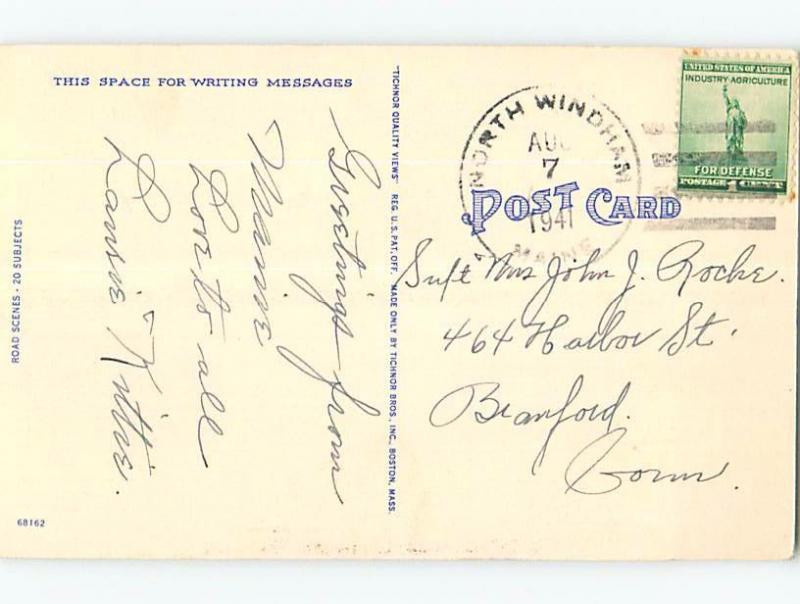 THIS SPACE FOR WRITING MESSAGES
Greetings from
Maine
Love to all
Lansie "Kittie.
ROAD SCENES - 20 SUBJECTS
68162
"TICHNOR QUALITY VIEWS" REG. U.S. PAT. OFF. MADE ONLY BY TICHNOR BROS., INC., BOSTON, MASS.
NORTH WINDHAM
AUG
7
1941
MAINE
UNITED STATES OF AMERICA
INDUSTRY AGRICULTURE
FOR DEFENSE
POSTAGE 1 CENT
POST CARD
Supt Mrs John J. Rocke.
464 Harbor St.
Branford.
Conn.